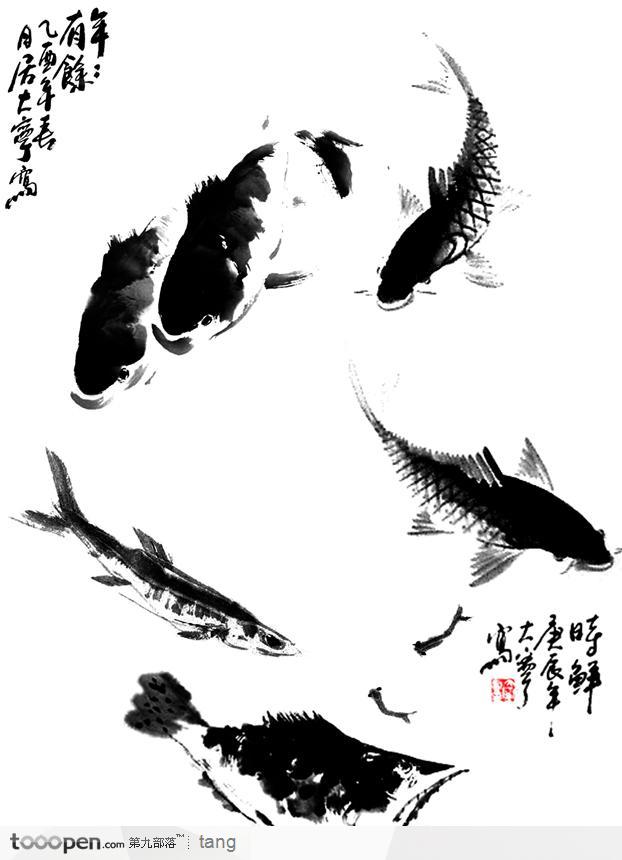 年々
有餘
乙酉年春
月居大寧寫
時鮮
庚辰年
大寧
寫
tooopen.com 第九部落™ tang